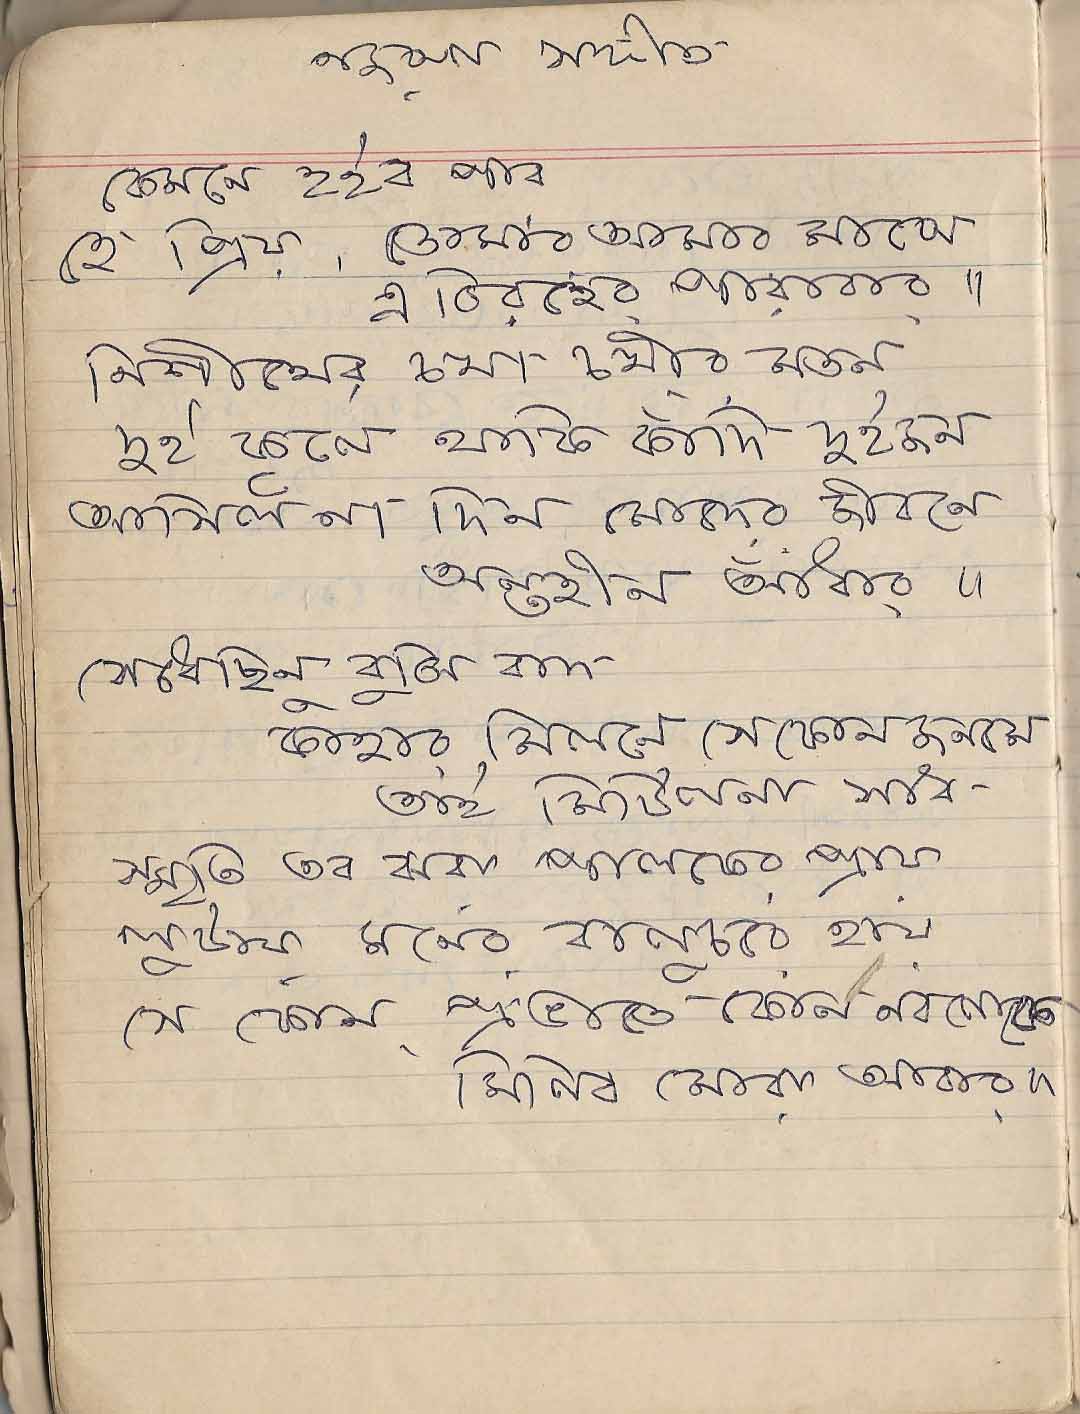 নজরুল সঙ্গীত
কেমনে হইব পার
হে প্রিয়, তোমার আমার মাঝে
এ বিরহের পারাবার ॥
নিশীথের চখা চখীর মতন
দুই কূলে থাকি কাঁদি দুইজন
আসিল না দিন মোদের জীবনে
অন্তহীন আঁধার ॥
সেধেছিনু বুঝি বাদ
কাহার মিলনে সে কোন জনমে
তাই মিটিলনা সাধ
স্মৃতি তব ঝরা পালকের প্রায়
লুটায় মনের বালুচরে হায়
সে কোন প্রভাতে কোন নবলোকে
মিলিব মোরা আবার ॥